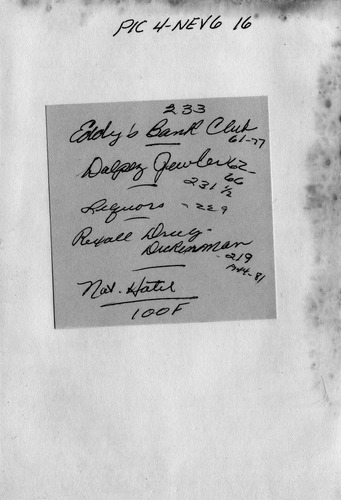 PIC 4-NEV6 16
233
Eddy's Bank Club
61-77
Dalpez Jewler 62-
66
231 1/2
Liquors - 229
Rexall Drug-
Dickinman
- 219
M44-81
Nat. Hotel
100F